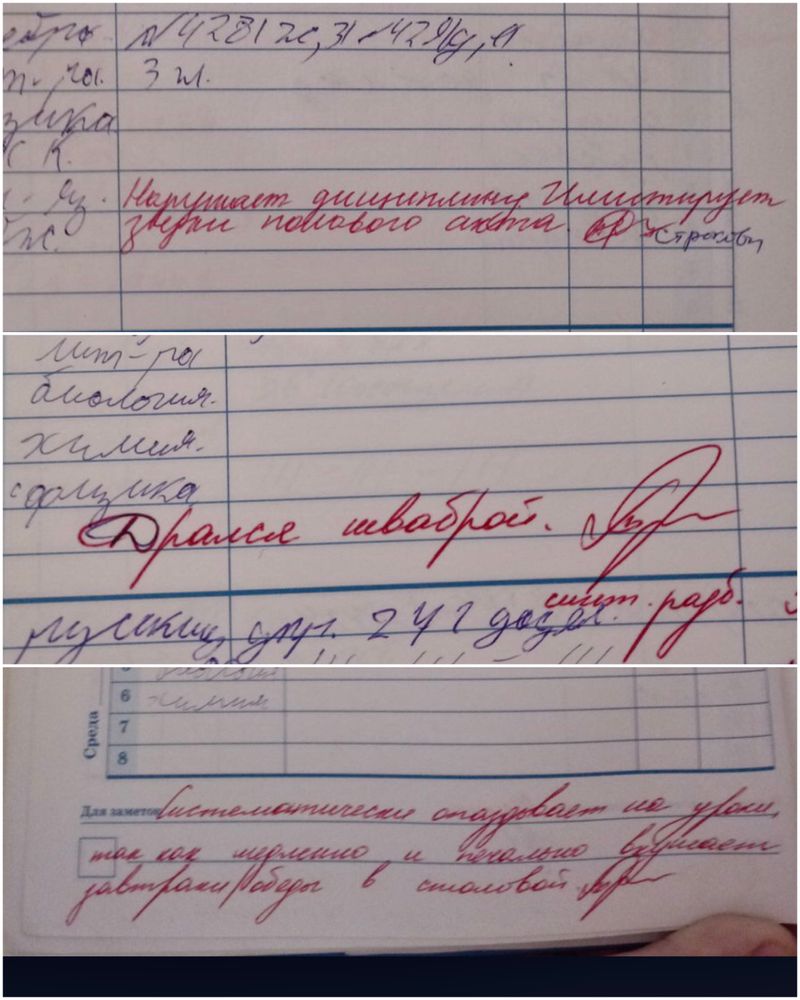 №4281 ж, з, №429 д, и
3 л.
К.
Нарушает дисциплину. Имитирует
звуки полового акта.
лит-ра
биология.
химия.
физика
Дрался шваброй.
синт. разб.
русский, упр. 241
6 химия
7
8
Среда
Для заметок Систематически опаздывает на уроки,
так как медленно и печально вкушает
завтраки/обеды в столовой.